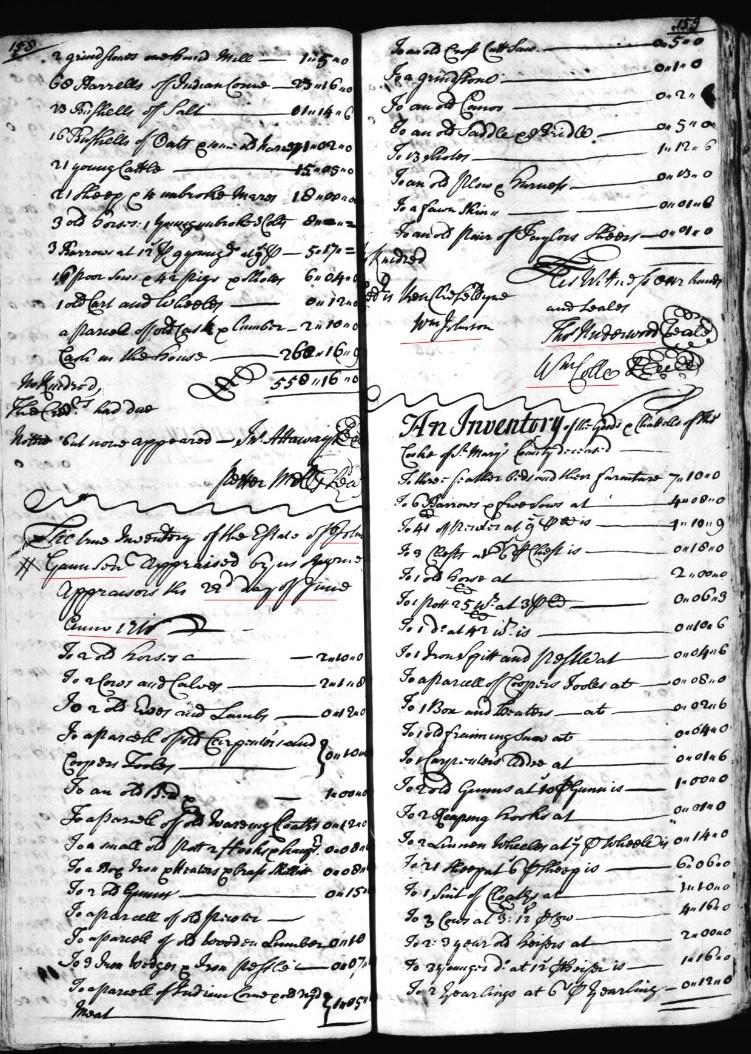 158
2 grindstones one hand Mill — 1"5"0
68 Barrells of Indian Corne — 23"16"0
23 Bushells of Salt 01"14"6
16 Bushells of Oats & some old 1"02"0
21 young Cattle — 15"05"0
21 Sheep & 4 unbroke Mares 18"00"0
3 old horses: 1 Young unbroke Colt 8"
3 Barrows at 12 ℔ 9 young at 9 ℔ — 5"17"
18 poor Sows & 42 Pigs & Shotes 6"04"0
1 old Cart and Wheeles — 0"12"0
a Parcell of old Cask & Lumber — 2"10"0
Cash in the house — 268"16"9
558"16"0
No Kindred,
The Credrs. had due
Notice but none appeared — Jno. Attaway Sea
Peter Mills Sea
The true Inventory of the Estate of John
Gaunson Appraised by us
Appraisors this 22d day of June
Anno 1716
To 2 old horses — 2"10"0
To 2 Cows and Calves — 2"1"8
To 2 old Ewes and Lambs — 0"12"0
To a parcell of old Carpenters and
Coopers Tooles — 0"10"0
To an old Bed — 1"00"0
To a parcell of old Wareing Cloaths 0"12"0
To a small old Pott 2 Hooks & 0"08"
To a Box Iron & Heaters & brass Skillet 0"08"
To 2 old Gunns — 0"15"
To a parcell of old Pewter —
To a parcell of old Wooden Lumber 0"10
To 3 Iron Wedges & Iron Pestle — 0"07
To a parcell of Indian Corne & old
Meat — 1"05"
159
To an old Cross Cutt Saw — 0"5"0
To a grindstone — 0"1"0
To an old Canoe — 0"2"
To an old Saddle & Bridle — 0"5"0
To 13 Shotes — 1"12"6
To an old Plow & harness — 0"13"0
To a fawn Skinn — 0"01"6
To an old Pair of Taylors Sheers — 0"01"0
Kindred
As Witness our hands
and Seales
Wm Johnson
Tho: Underwood Seale
Wm Colle Seale
An Inventory of the Goods & Chattells of
Cooke of St. Marys County deceased
To three feather beds and their furniture 7"10"0
To 6 Barrows & five Sows at 4"08"0
To 41 of Pewter at is 4"10"9
To 3 Chests at 6 ℔ Chest is — 0"18"0
To 1 old horse at — 2"00"0
To 1 pott 25 Wt. at 3 ℔ — 0"06"3
To 1 Do. at 42 Wt. is — 0"10"6
To 1 Iron Spitt and Pestle at 0"04"6
To a parcell of Coopers Tooles at — 0"08"0
To 1 Box and Heaters — at — 0"02"6
To 1 old framing Saw at 0"04"0
To 1 Carpenters Addze at — 0"01"6
To 2 old Gunns at 10 ℔ Gunn is — 1"00"0
To 2 Reaping hooks at — 0"01"0
To 2 Linnen Wheeles at 7 ℔ Wheele is 0"14"0
To 21 Sheep at 6 ℔ Sheep is — 6"06"0
To 1 Suit of Cloaths at 1"10"0
To 3 Cows at 3: 12 ℔ Cow — 4"16"0
To 2: 3 year old Heifers at — 2"00"0
To 3 younger Do. at 12 ℔ Heifer is — 1"16"0
To 2 Yearlings at 6 ℔ Yearling — 0"12"0